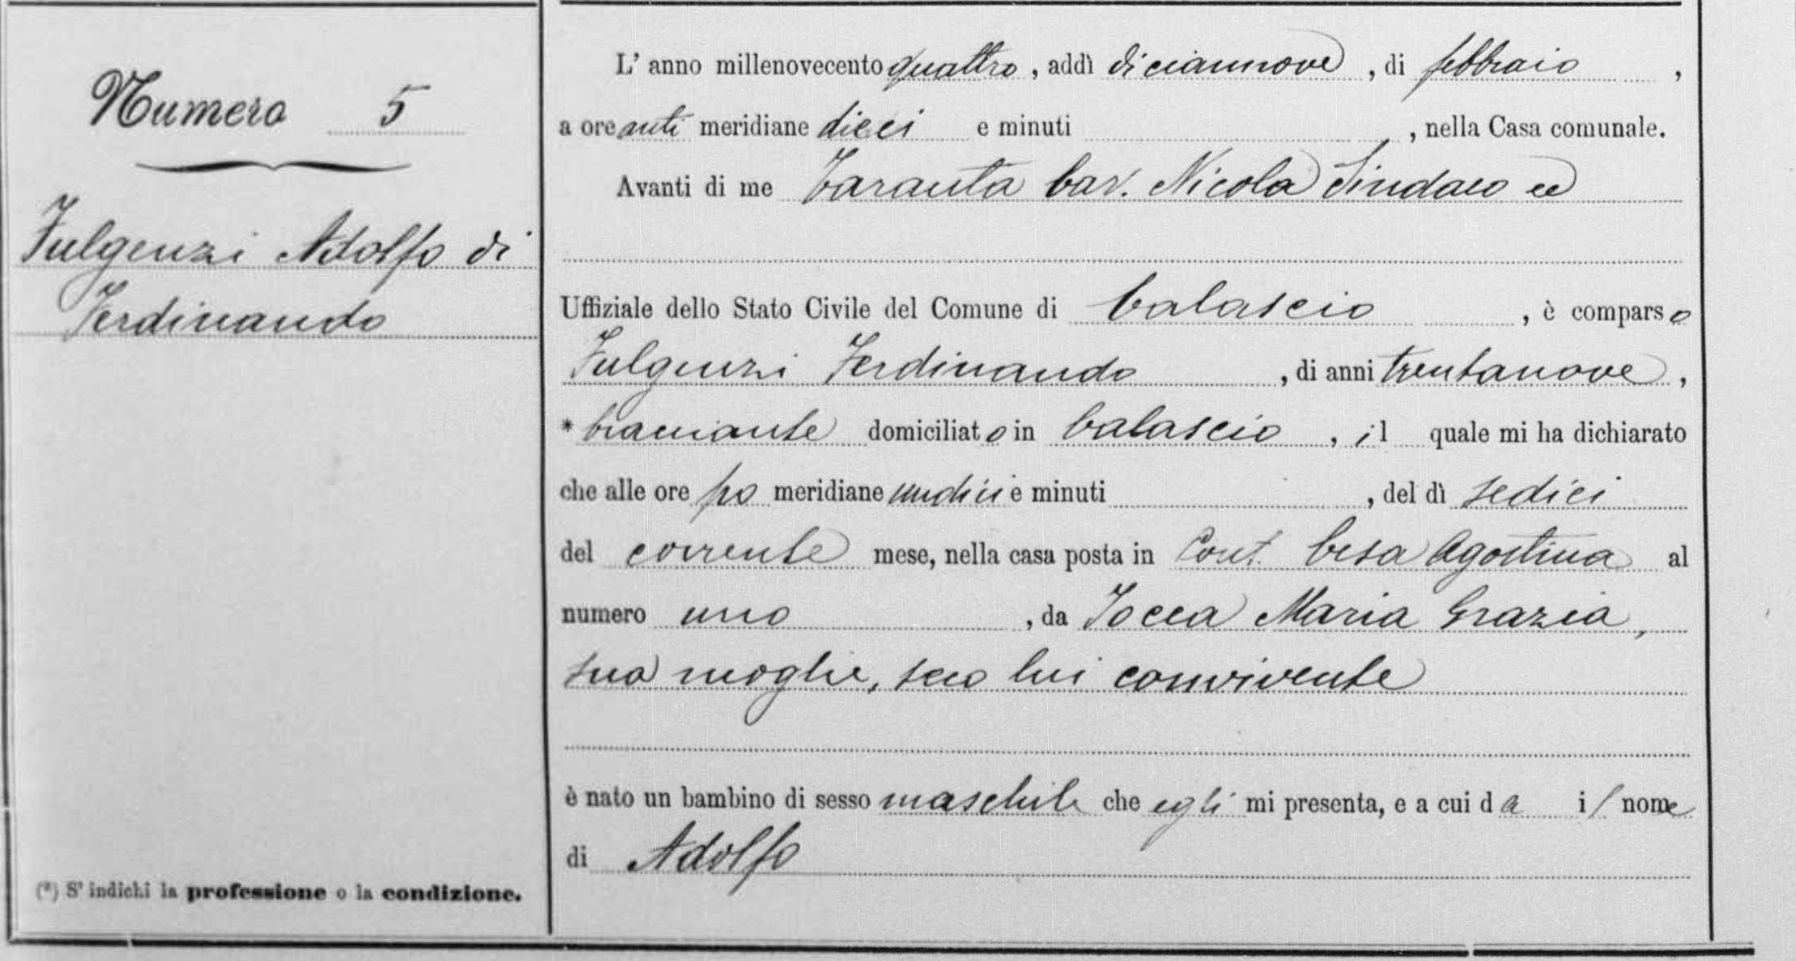 Numero 5
Fulgenzi Adolfo di
Ferdinando
(*) S' indichi la professione o la condizione.
L' anno millenovecento quattro, addì diciannove, di febbraio,
a ore anti meridiane dieci e minuti , nella Casa comunale.
Avanti di me Taranta Cav. Nicola Sindaco ed
Uffiziale dello Stato Civile del Comune di Calascio, è comparso
Fulgenzi Ferdinando, di anni trentanove,
* bracciante domiciliato in Calascio, il quale mi ha dichiarato
che alle ore po meridiane undici e minuti , del dì sedici
del corrente mese, nella casa posta in Cont. Agostina al
numero uno, da Maria Grazia,
sua moglie, seco lui convivente
è nato un bambino di sesso maschile che egli mi presenta, e a cui da il nome
di Adolfo